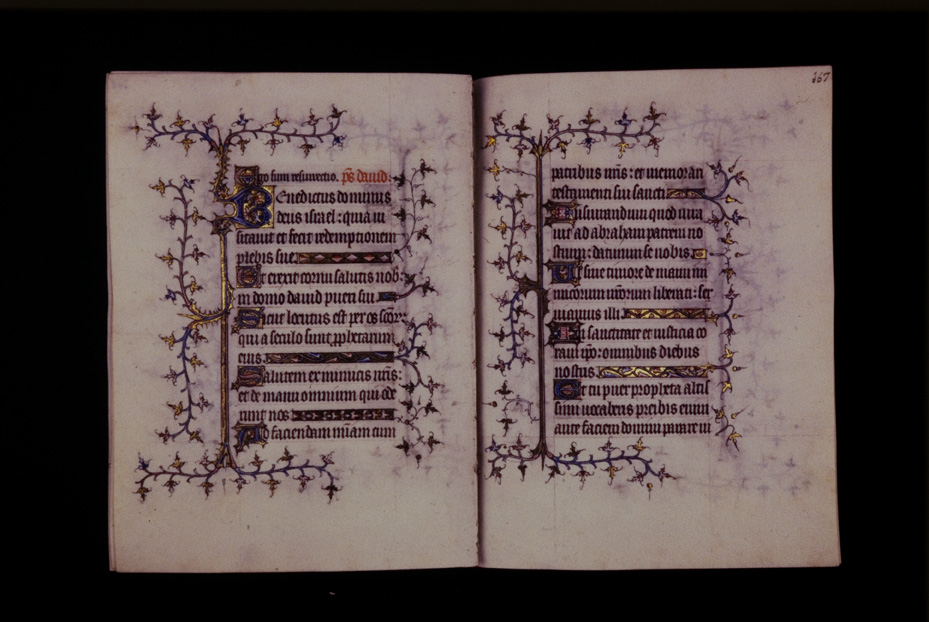 Ego sum resurrectio. ps david.
Benedictus dominus
deus israel: quia ui
sitauit et fecit redemptionem
plebis sue
Et erexit cornu salutis nob:
in domo dauid pueri sui
Sicut locutus est per os scōr:
qui a seculo sunt pphetarum
eius
Salutem ex inimicis nris:
et de manu omnium qui ode
runt nos
Ad faciendam miam cum
167
patribus nris: et memorari
testamenti sui sancti
Iusiurandum quod iura
uit ad abraham patrem no
strum: daturum se nobis
Ut sine timore de manu ini
micorum nrorum liberati: ser
uiamus illi
In sanctitate et iusticia co
ram ipo: omnibus diebus
nostris
Et tu puer propheta altis
simi uocaberis preibis enim
ante faciem domini parare ui